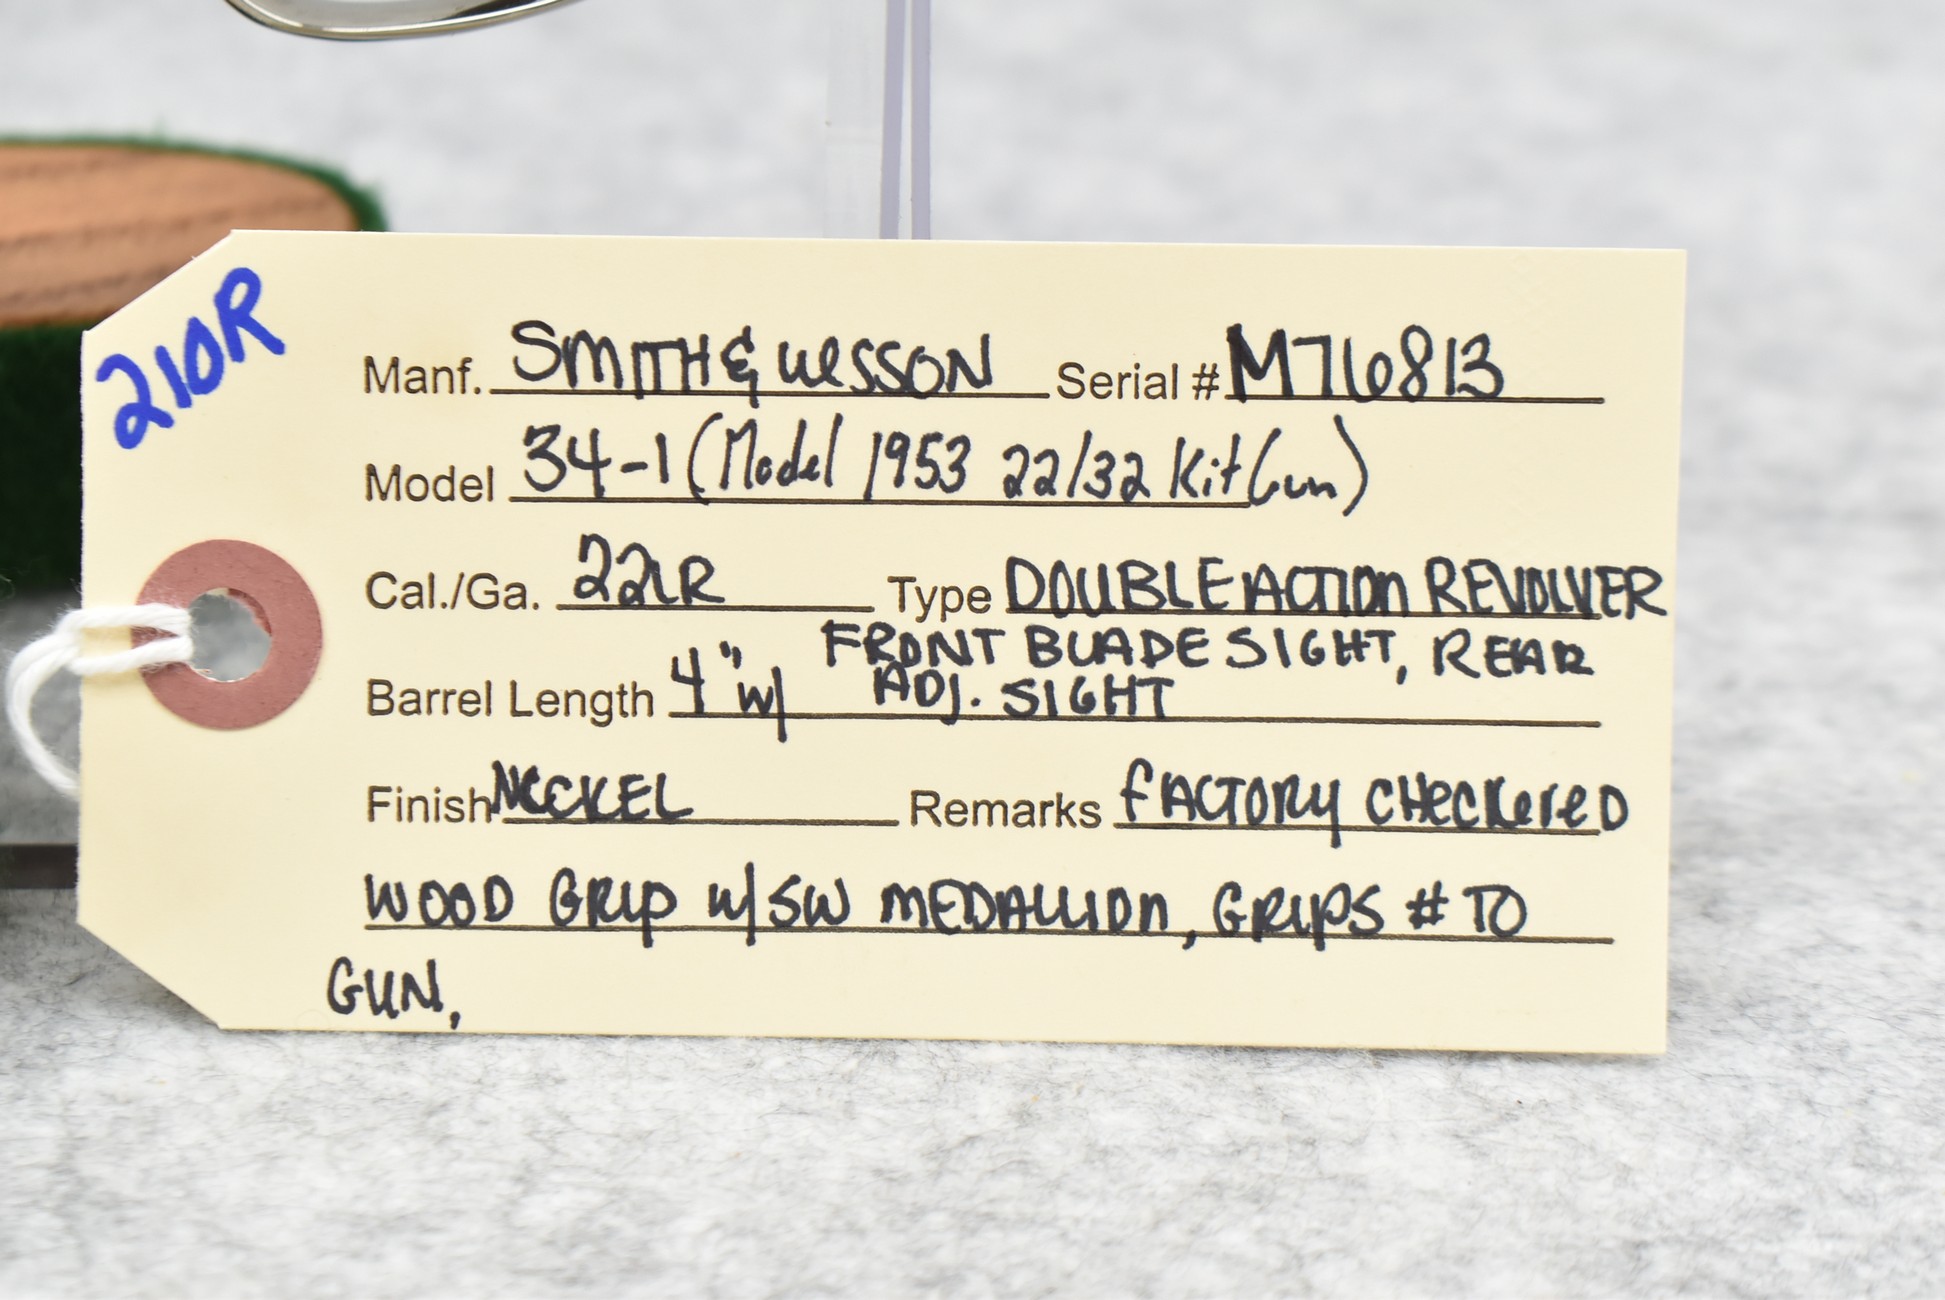 210R
Manf. SMITH & WESSON Serial # M76813
Model 34-1 (Model 1953 22/32 Kit Gun)
Cal./Ga. 22LR Type DOUBLE ACTION REVOLVER
FRONT BLADE SIGHT, REAR
Barrel Length 4" w/ ADJ. SIGHT
Finish NICKEL Remarks FACTORY CHECKERED
WOOD GRIP w/ SW MEDALLION, GRIPS # TO
GUN,